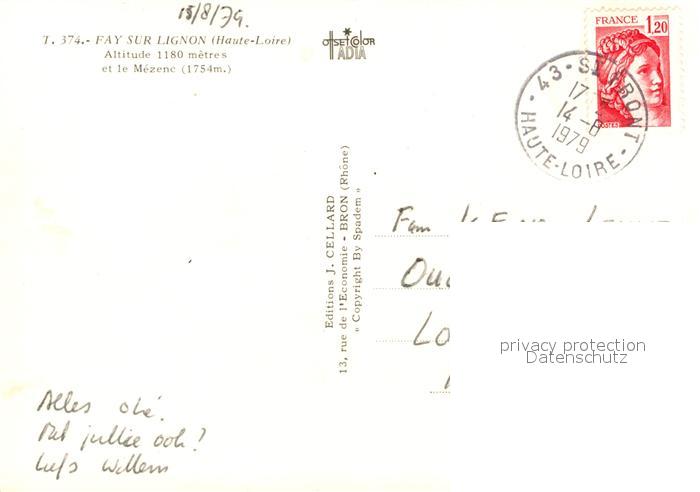 15/8/79.
T. 374.- FAY SUR LIGNON (Haute-Loire)
Altitude 1180 mètres
et le Mézenc (1754m.)
OFFSET COLOR
IADIA
FRANCE
1,20
POSTES
43 - ST FRONT
17
14-8
1979
HAUTE-LOIRE
Editions J. CELLARD
13, rue de l'Economie - BRON (Rhône)
« Copyright By Spadem »
Fam
privacy protection
Datenschutz
Alles oké.
Met jullie ook?
Liefs Willem